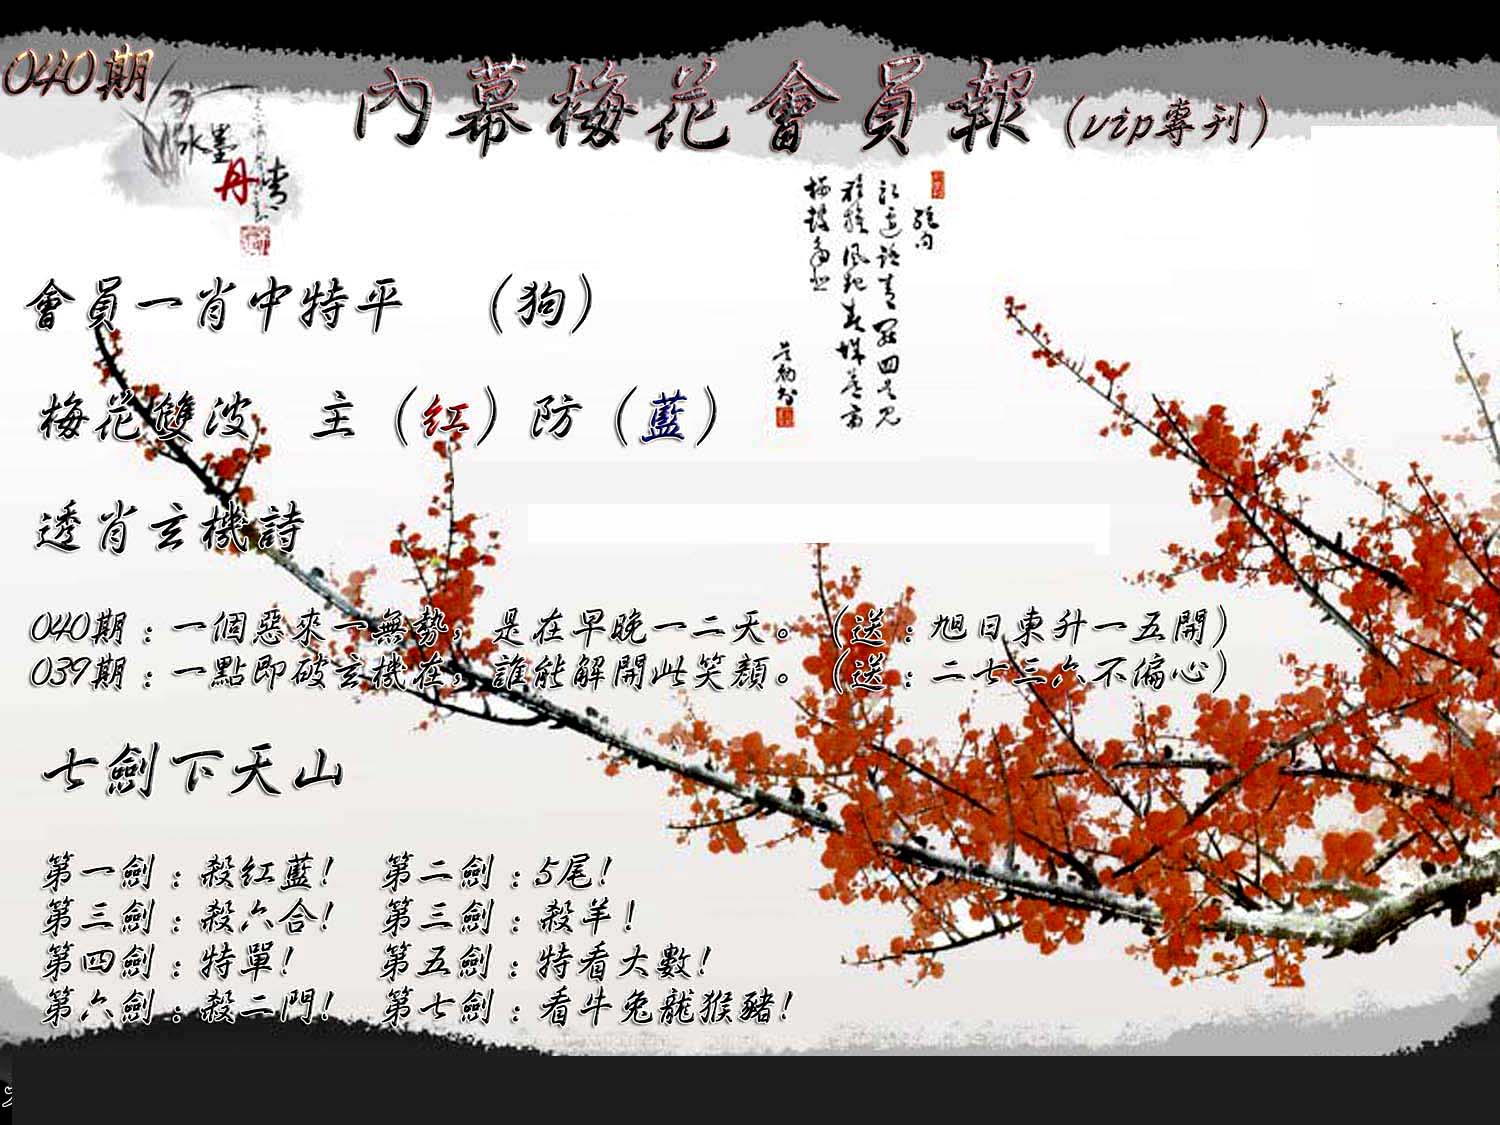 040期
內幕梅花會員報（vip專刊）
水墨
丹青
會員一肖中特平　（狗）
梅花雙波　主（紅）防（藍）
透肖玄機詩
040期：一個惡來一無勢，是在早晚一二天。（送：旭日東升一五開）
039期：一點即破玄機在，誰能解開此笑顏。（送：二七三六不偏心）
七劍下天山
第一劍：殺紅藍！　第二劍：5尾！
第三劍：殺六合！　第三劍：殺羊！
第四劍：特單！　第五劍：特看大數！
第六劍：殺二門！　第七劍：看牛兔龍猴豬！